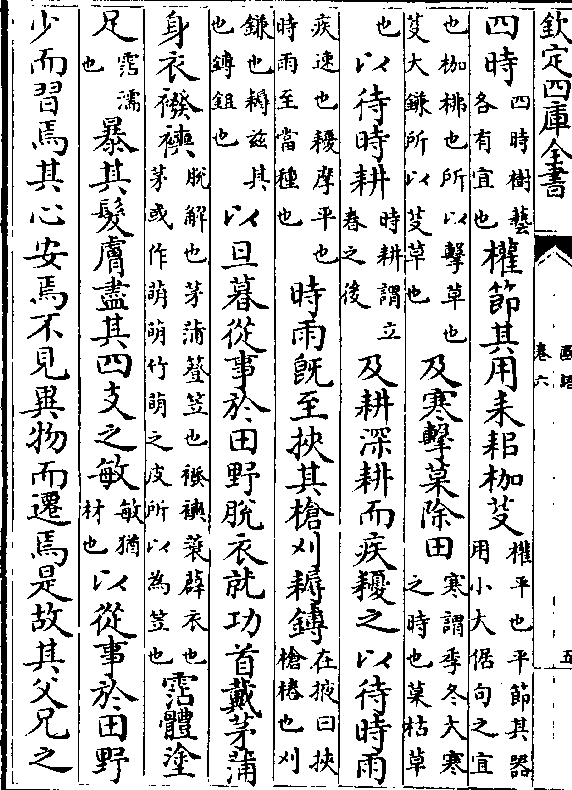 欽定四庫全書
國語
卷六
五
四時四時樹藝各有宜也權節其用耒耜枷芟權平也平節其器用小大倨句之宜
也枷梻也所以擊草也芟大鎌所以芟草也及寒擊菒除田寒謂季冬大寒之時也菒枯草
也以待時耕時耕謂立春之後及耕深耕而疾耰之以待時雨
疾速也耰摩平也時雨至當種也時雨既至挾其槍刈耨鎛在掖曰挾槍樁也刈
鎌也耨兹其也鎛鉏也以旦暮從事於田野脫衣就功首戴茅蒲
身衣襏襫脫解也茅蒲簦笠也襏襫蓑薜衣也茅或作萌萌竹萌之皮所以為笠也霑體塗
足霑濡也暴其髮膚盡其四支之敏敏猶材也以從事於田野
少而習焉其心安焉不見異物而遷焉是故其父兄之